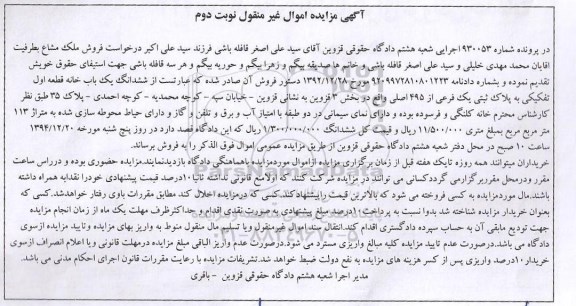 آگهی مزایده اموال غیر منقول نوبت دوم
در پرونده شماره ۹۳۰۰۵۳ اجرایی شعبه هشتم دادگاه حقوقی قزوین آقای سید علی اصغر قافله باشی فرزند سید علی اکبر درخواست فروش ملک مشاع بطرفیت
اقایان محمد مهدی خلیلی و سید علی اصغر قافله باشی و خانم ها صدیقه بیگم و زهرا بیگم و حوریه بیگم و هر سه قافله باشی جهت استیفای حقوق خویش
تقدیم نموده و بشماره دادنامه ۹۲۰۹۹۷۲۸۱۰۸۰۱۲۲۳ مورخ ۱۳۹۲/۱۲/۲۸ دستور فروش آن صادر شده که عبارتست از ششدانگ یک باب خانه قطعه اول
تفکیکی به پلاک ثبتی یک فرعی از ۴۹۵ اصلی واقع در بخش ۳ قزوین به نشانی قزوین - خیابان سپه - کوچه محمدیه - کوچه احمدی - پلاک ۳۵ طبق نظر
کارشناس محترم خانه کلنگی و فرسوده بوده و دارای نمای سیمانی در دو طبقه با امتیاز آب و برق و تلفن و گاز و دارای حیاط محوطه سازی شده به متراژ ۱۱۳
متر مربع مربع بمبلغ متری ۱۱/۵۰۰/۰۰۰ ریال و قیمت کل ششدانگ ۱/۳۰۰/۰۰۰/۰۰۰ ریال که این دادگاه قصد دارد در روز پنج شنبه مورخه ۱۳۹۴/۱۲/۲۰
ساعت ۱۰ صبح در محل دفتر شعبه هشتم دادگاه حقوقی قزوین از طریق مزایده عمومی اموال فوق الذکر را به فروش برساند.
خریداران میتوانند همه روزه تایک هفته قبل از زمان برگزاری مزایده ازاموال موردمزایده باهماهنگی دادگاه بازدیدنمایند.مزایده حضوری بوده و درراس ساعت
مقرر ودرمحل مقرربرگزارمی گرددکسانی می توانند در مزایده شرکت کنند که اولامنع قانونی نداشته ثانیا ۱۰درصد قیمت پیشنهادی خودرا نقدابه همراه داشته
باشند.مال موردمزایده به کسی فروخته می شود که بالاترین قیمت راپیشنهادکند.کسی که درمزایده اخلال کند مطابق مقررات باوی رفتار خواهدشد.کسی که
بعنوان خریدار مزایده شناخته شد بدوا نسبت به پرداخت ۱۰درصد مبلغ پیشنهادی به صورت نقدی اقدام و حداکثرظرف مهلت یک ماه از زمان انجام مزایده
جهت تودیع مابقی آن به حساب سپرده دادگستری اقدام کند.انتقال سند اموال غیرمنقول ویا تسلیم مال منقول منوط به واریز بهای مزایده وتایید مزایده ازسوی
دادگاه می باشد.درصورت عدم تایید مزایده کلیه مبالغ واریزی مسترد می شود.درصورت عدم واریز الباقی مبلغ مزایده درمهلت قانونی ویا اعلام انصراف ازسوی
خریدار۱۰درصد واریزی پس از کسر هزینه های مزایده به نفع دولت ضبط خواهد شد.تشریفات مزایده با رعایت مقررات قانون اجرای احکام مدنی می باشد.
مدیر اجرا شعبه هشتم دادگاه حقوقی قزوین - باقری